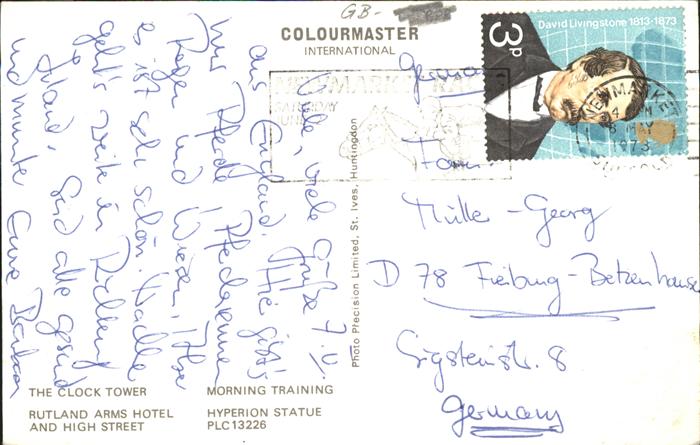 GB-
COLOURMASTER
INTERNATIONAL
David Livingstone 1813-1873
3p
NEWMARKET
SATURDAY
NEWMARKET
MAY
1973
Germany
Fam.
Müller - Georg
D 78 Freiburg - Betzenhausen
Sigsteinstr. 8
Germany
Photo Precision Limited, St. Ives, Huntingdon
Viele, viele Grüße
aus England. Hier gibt's
nur Pferde, Pferderennen
Regen und Wiesen,
es ist sehr schön. Walle
geht's weiter in Richtung
Irland, sind alle gesund
und munter Eure Barbara
THE CLOCK TOWER
MORNING TRAINING
RUTLAND ARMS HOTEL
AND HIGH STREET
HYPERION STATUE
PLC13226